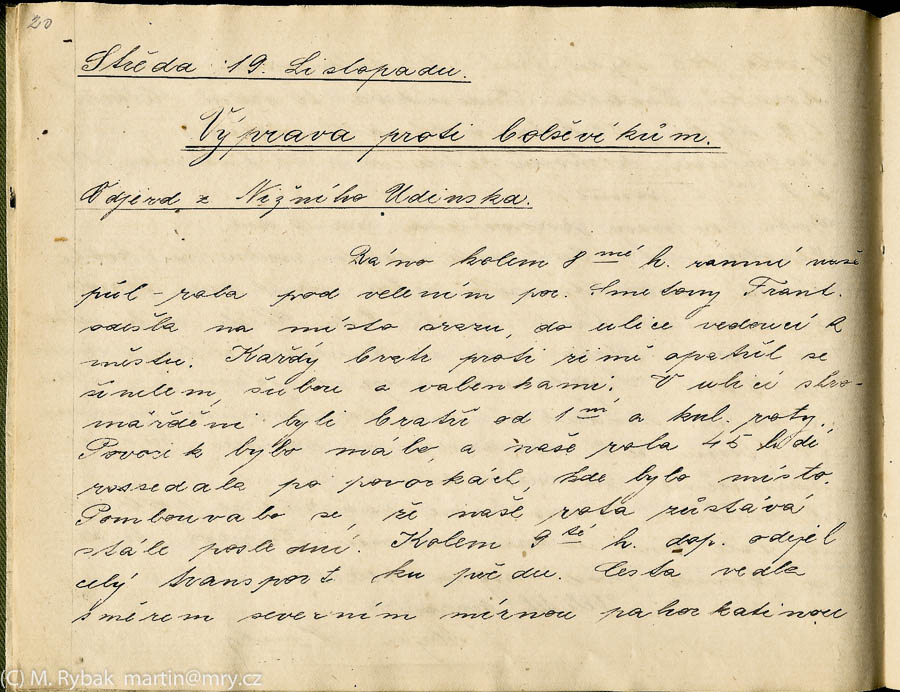 20
Středa 19. Listopadu.
Výprava proti bolševikům.
Odjezd z Nižního Udinska.
Ráno kolem 8 mé h. ranní naše
půl-rota pod velením por. Smetany Frant.
odešla na místo srazu, do ulice vedoucí k
městu. Každý bratr proti zimě opatřil se
šinelem, šubou a valenkami. V ulici shro-
mážděni byli bratří od 1 ní a kul. roty.
Povozů k bylo málo, a naše rota 45 lidí
rozsedala po povozkách, kde bylo místo.
se, že naše rota zůstává
stále poslední. Kolem 9 té h. dop. odejel
celý transport ku předu. Cesta vedla
směrem severním mírnou pahorkatinou
(C) M. Rybak martin@mry.cz